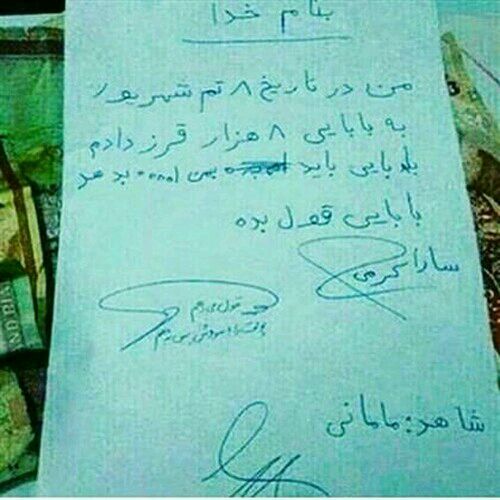 بنام خدا
من در تاریخ ۸ تم شهریور
به بابایی ۸ هزار قرز دادم
بابایی باید بمن ۱۰۰۰۰ بدهد
بابایی قول بده
سارا کرمی
قول می دهم
شاهد: مامانی